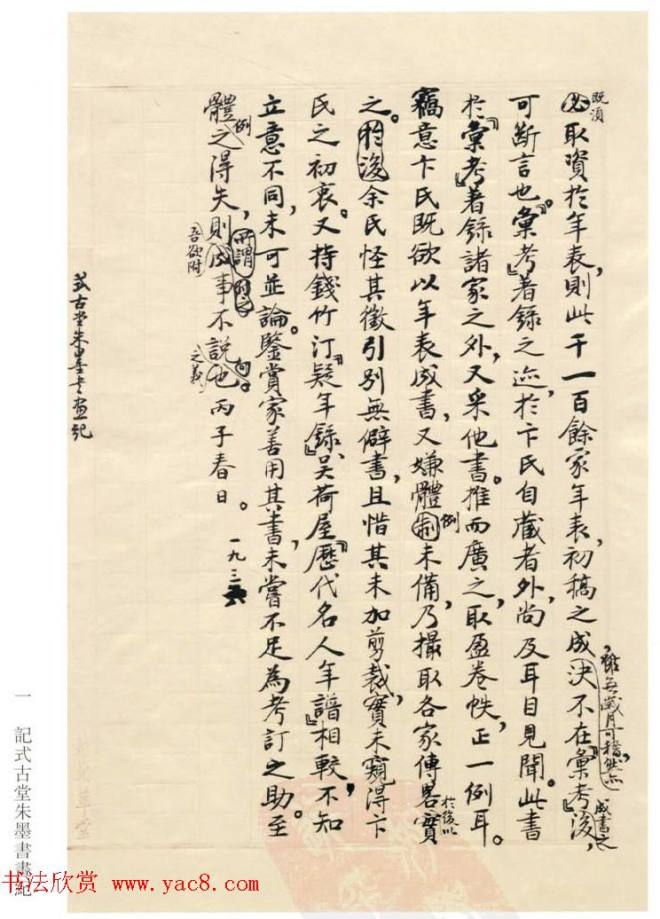 必取資於年表，則此千一百餘家年表，初稿之成決不在『彙考』後，
既須
雖無歲月可稽，然亦
成書之
可断言也。『彙考』著録之迹，於卞氏自藏者外，尚及耳目見聞。此書
於『彙考』著録諸家之外，又采他書。推而廣之，取盈卷帙，正一例耳。
竊意卞氏既欲以年表成書，又嫌體制未備，乃撮取各家傳畧實
例
於後以
之。
余氏怪其徵引別無僻書，且惜其未加剪裁，實未窺得卞
氏之初衷。又持錢竹汀『疑年録』、吴荷屋『歷代名人年譜』相較，不知
立意不同，未可並論。鑒賞家善用其書，未嘗不足為考訂之助。至
體之得失，則所謂成事不說也
例
吾欲附
之義
丙子春日。
一九三六
式古堂朱墨書畫紀
一 記式古堂朱墨書畫紀
书法欣赏 www.yac8.com